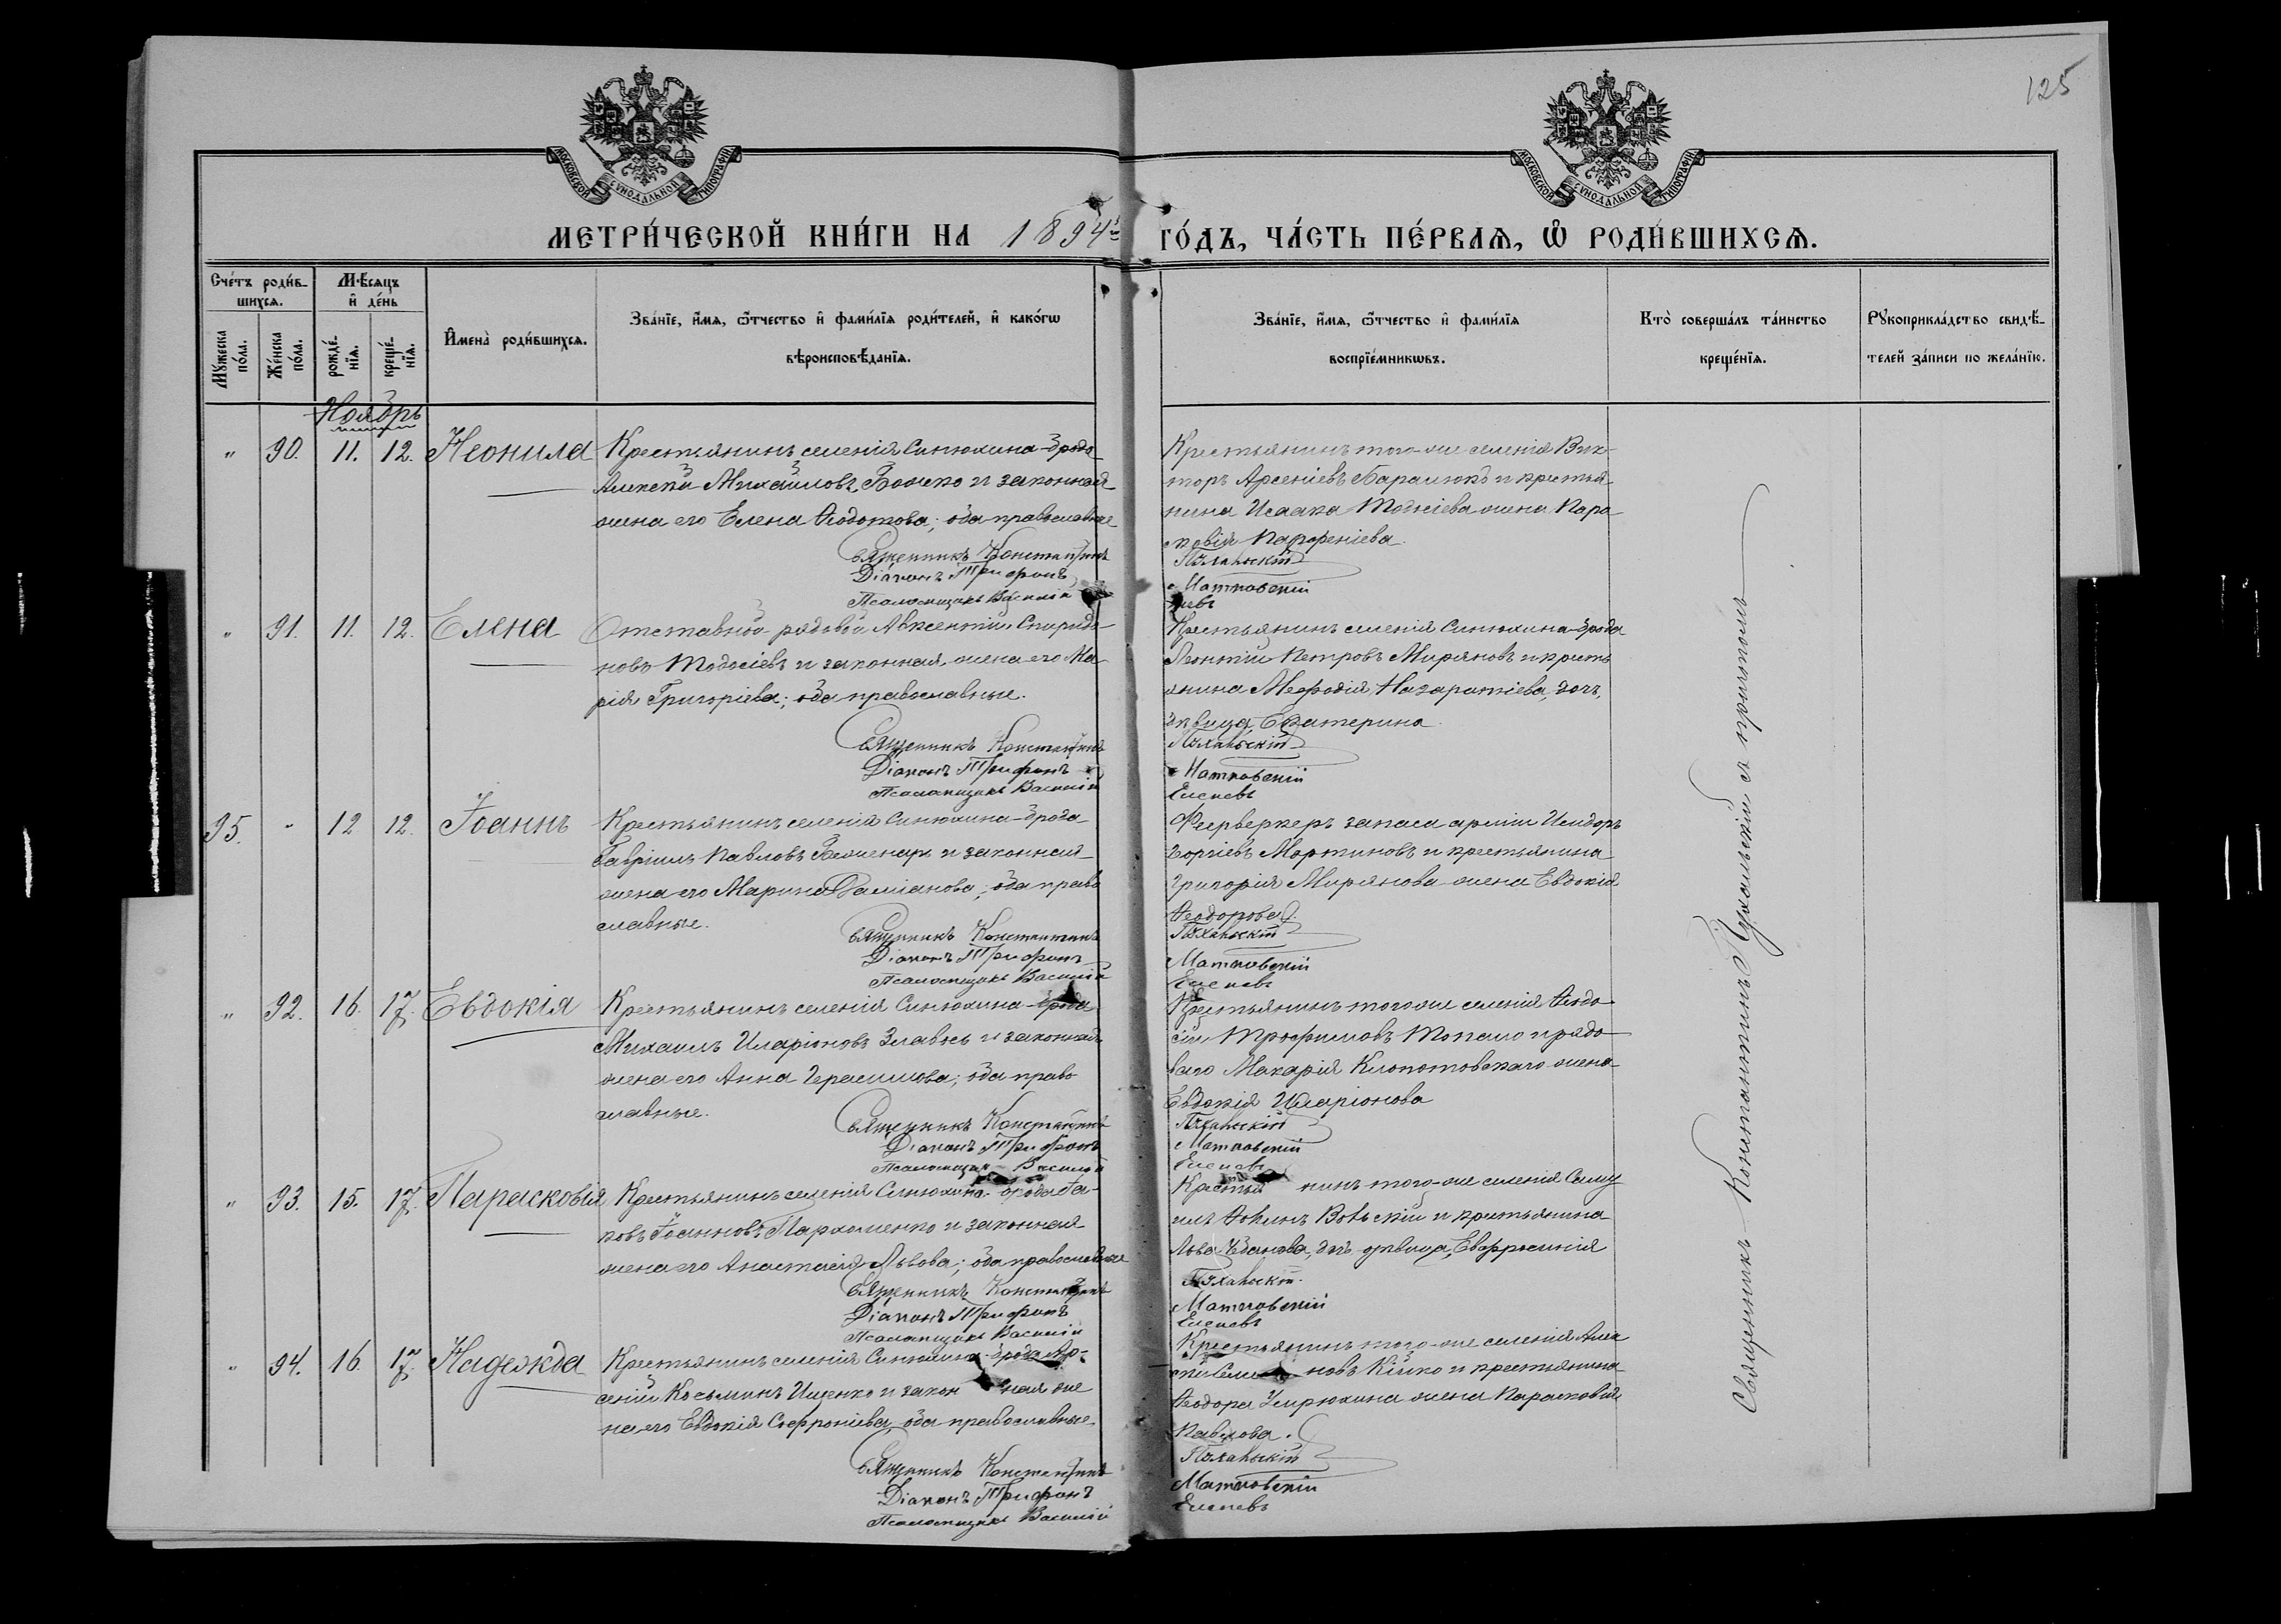 125
МОСКОВСКОЙ СУНОДАЛЬНОЙ ТИПОГРАФІИ
МОСКОВСКОЙ СУНОДАЛЬНОЙ ТИПОГРАФІИ
МЕТРИ́ЧЕСКОЙ КНИ́ГИ НА 1894й ГО́ДЪ, ЧА́СТЬ ПЕ́РВАѦ, Ѡ РОДИ́ВШИХСѦ.
Сче́тъ роди́в-
шихсѧ.
Мꙋ́жеска по́ла.
Же́нска по́ла.
Мѣ́сѧцъ
и҆ де́нь
рожде́-
нїѧ.
креще́-
нїѧ.
И҆мена̀ роди́вшихсѧ.
Зва́нїе, и҆́мѧ, ѻ҆́тчество и҆ фами́лїѧ роди́телей, и҆ како́гѡ
вѣроисповѣ́данїѧ.
Зва́нїе, и҆́мѧ, ѻ҆́тчество и҆ фами́лїѧ
воспрїе́мникѡвъ.
Кто̀ соверша́лъ та́инство
креще́нїѧ.
Рꙋкоприкла́дство свидѣ́-
телей за́писи по жела́нїю.
Ноябрь
" 90. 11. 12. Неонила
Крестьянинъ селенія Синюхина-Брода
Алексѣй Михайловъ Божко и законная
жена его Елена Ѳедотова; оба православные
Священникъ Константинъ
Діаконъ Трифонъ
Псаломщикъ Василій
Крестьянинъ того-же селенія Вик-
торъ Арсеніевъ и крестья-
нина Исаака Тодосіева жена Пара-
сковія Парфеніева.
Матковскій
" 91. 11. 12. Елена
Отставной рядовой Авксентій Спиридо-
новъ Тодосіевъ и законная жена его Ма-
рія Григоріева; оба православные.
Священникъ Константинъ
Діаконъ Трифонъ
Псаломщикъ Василій
Крестьянинъ селенія Синюхина-Брода
Леонтій Петровъ Миряновъ и кресть
янина Меѳодія дочь,
дѣвица, Екатерина.
Матковскій
95. " 12 12. Іоаннъ
Крестьянинъ селенія Синюхина-Брода
Гавріилъ Павловъ и законная
жена его Марина Даміанова; оба право
славные.
Священникъ Константинъ
Діаконъ Трифонъ
Псаломщикъ Василій
Фейерверкеръ запаса арміи Исидоръ
Мартиновъ и крестьянина
Григорія Мирянова жена Евдокія
Ѳеодорова.
Матковскій
" 92. 16. 17. Евдокія
Крестьянинъ селенія Синюхина-Брода
Михаилъ Иларіоновъ и законная
жена его Анна Герасимова; оба право
славные.
Священникъ Константинъ
Діаконъ Трифонъ
Псаломщикъ Василій
Крестьянинъ того же селенія Ѳеодо-
сій Трофимовъ Топало и рядо-
ваго Макарія Клопотовскаго жена
Евдокія Иларіонова
Матковскій
" 93. 15. 17. Параскovія
Крестьянинъ селенія Синюхина-Брода Іа-
ковъ Іоанновъ Пархоменко и законная
жена его Анастасія Львова; оба православные
Священникъ Константинъ
Діаконъ Трифонъ
Псаломщикъ Василій
Крестья нинъ того-же селенія Саму
илъ и крестьянина
Льва дочь дѣвица, Евфросинія
Матковскій
" 94. 16. 17. Надежда
Крестьянинъ селенія Синюхина-Брода Ар-
сеній Косьминъ Ищенко и закон ная же
на его Евдокія Софроніева, оба православные.
Священникъ Константинъ
Діаконъ Трифонъ
Псаломщикъ Василій
Крестьянинъ того-же селенія Алек
новъ Кійко и крестьянина
Ѳеодора жена Парасковія
Павлова.
Матковскій
Священникъ Константинъ съ причтомъ